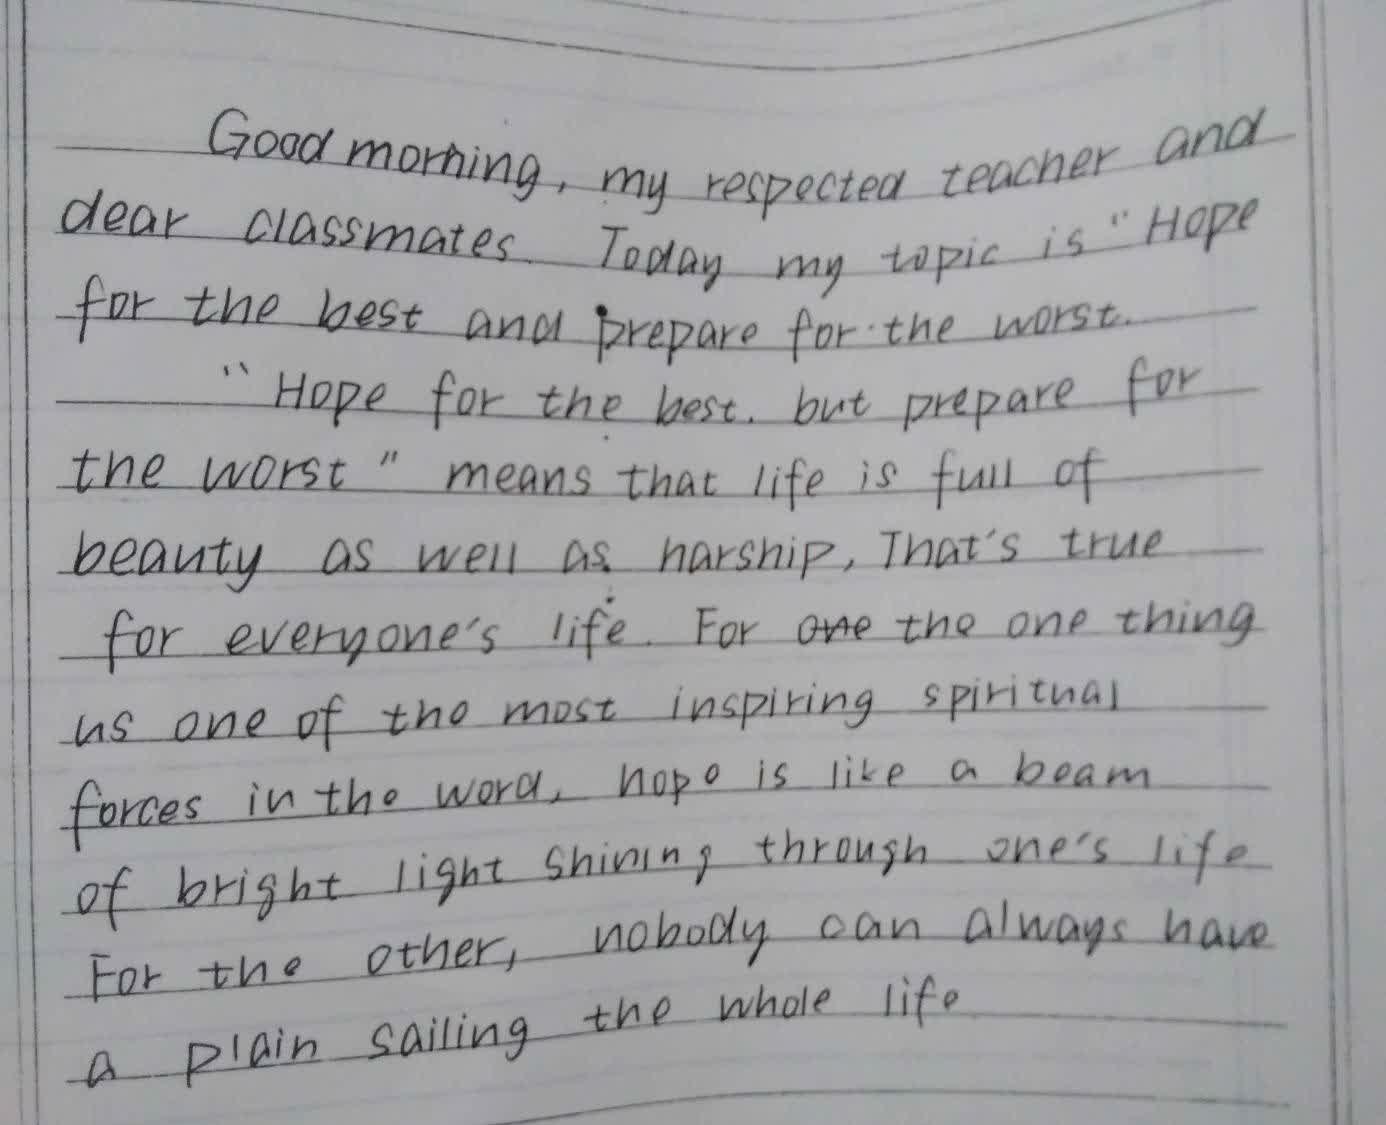 Good morning, my respected teacher and
dear classmates. Today my topic is "Hope
for the best and prepare for the worst.
"Hope for the best. but prepare for
the worst" means that life is full of
beauty as well as harship, That's true
for everyone's life. For one the one thing
us one of the most inspiring spiritual
forces in the word, hope is like a beam
of bright light shining through one's life
For the other, nobody can always have
a plain sailing the whole life